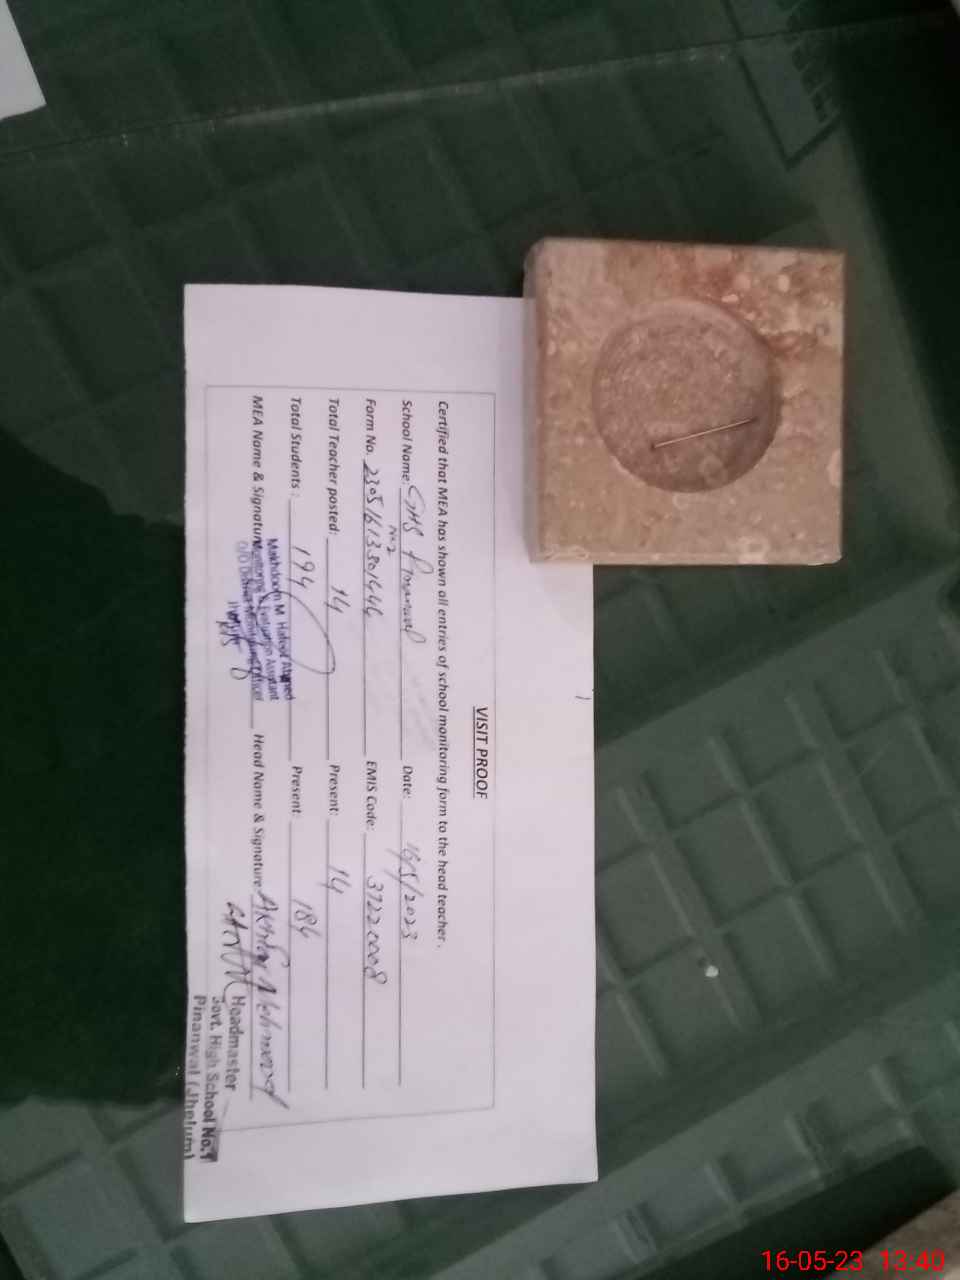 VISIT PROOF
Certified that MEA has shown all entries of school monitoring form to the head teacher.
School Name: GHS Pinanwal Date: 16/5/2023
No 2
Form No. EMIS Code: 37220008
Total Teacher posted: 14 Present: 14
Total Students: 194 Present: 184
MEA Name & Signature Head Name & Signature:
Makhdoom M. Hafeez Ahmed
Monitoring & Evaluation Assistant
O/O District Monitoring Officer
Jhelum
Headmaster
Govt. High School No.1
Pinanwal (Jhelum)
16-05-23 13:40